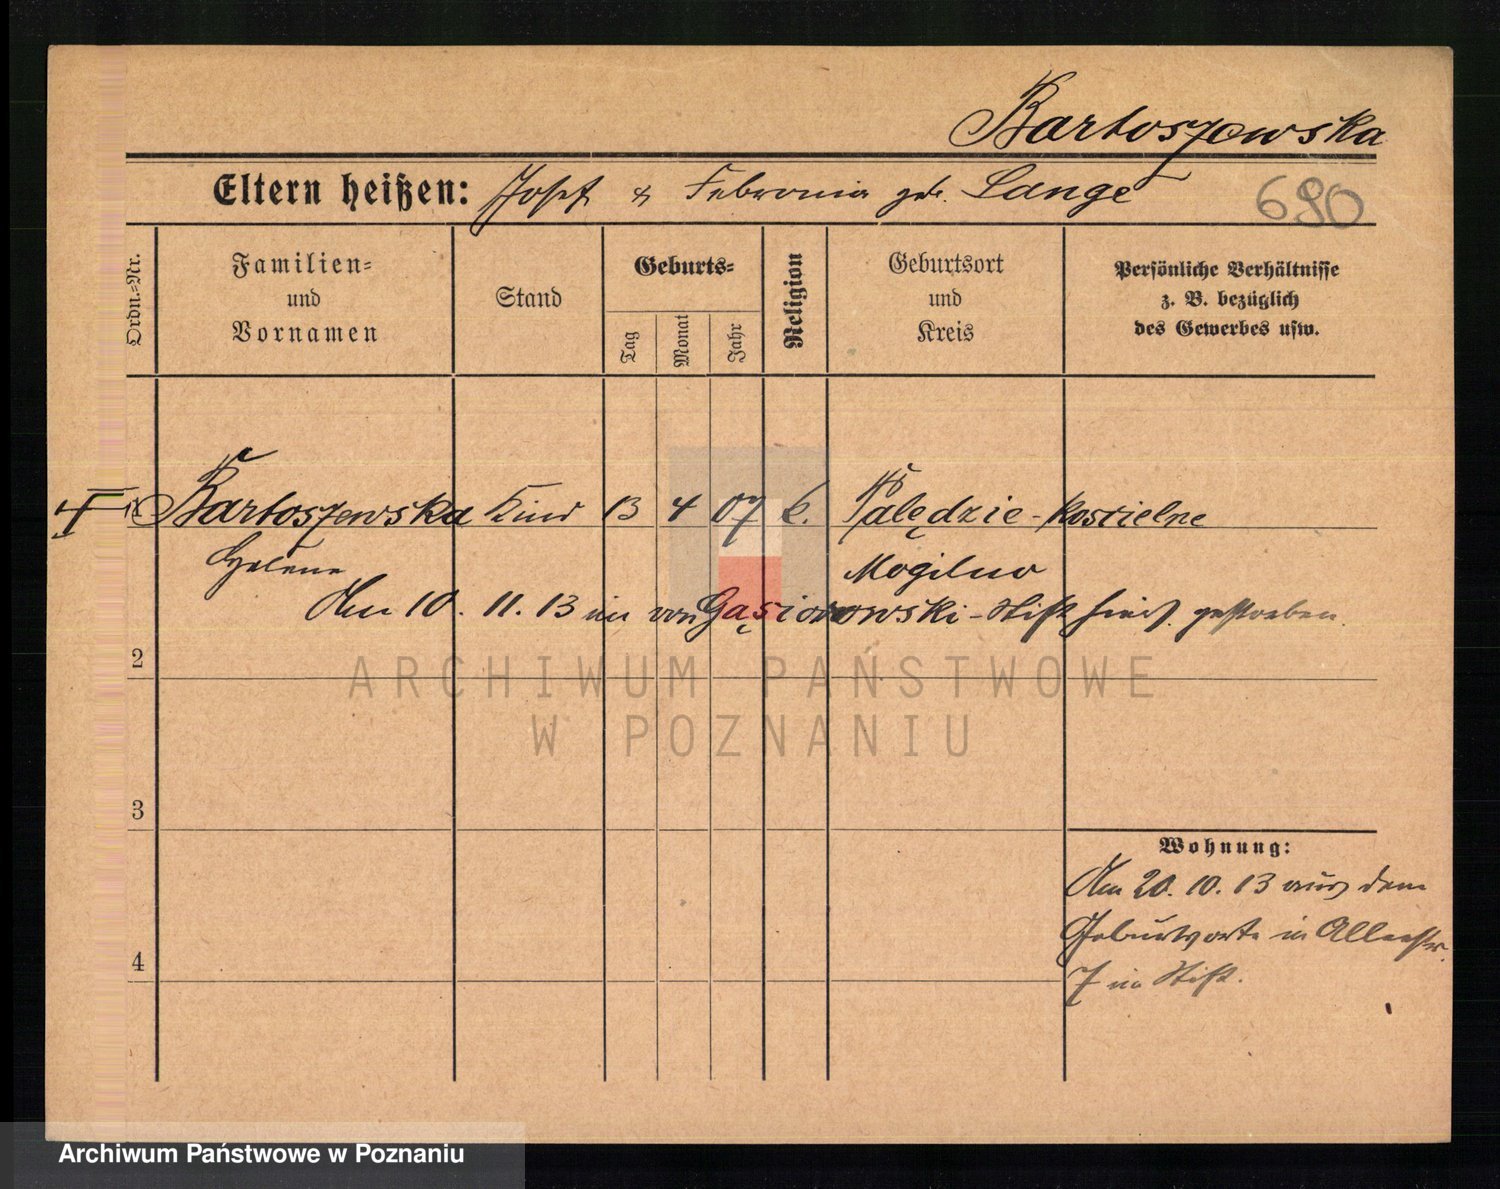 Bartoszewska
Eltern heißen: Josef & Febronia geb. Lange
690
Ordn.=Nr.
Familien=
und
Vornamen
Stand
Geburts=
Tag
Monat
Jahr
Religion
Geburtsort
und
Kreis
Persönliche Verhältnisse
z. B. bezüglich
des Gewerbes usw.
1 Bartoszewska Kind 13 4 07 k. Palędzie-koscielne
Helene Mogilno
Am 10. 11. 13 im von Gąsiorowski-Stift hier gestorben.
2
3
4
Wohnung:
Am 20. 10. 13 aus dem
Geburtsorte in Alleestr.
7 im Stift.
ARCHIWUM PAŃSTWOWE
W POZNANIU
Archiwum Państwowe w Poznaniu